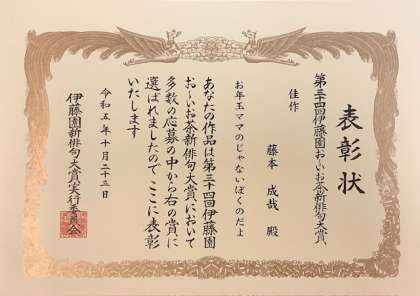 表彰状
第三十四回伊藤園お〜いお茶新俳句大賞
佳作
藤本 成哉 殿
お年玉ママのじゃないぼくのだよ
あなたの作品は第三十四回伊藤園
お〜いお茶新俳句大賞において
多数の応募の中から右の賞に
選ばれましたのでここに表彰
いたします
令和五年十月二十三日
伊藤園新俳句大賞実行委員会